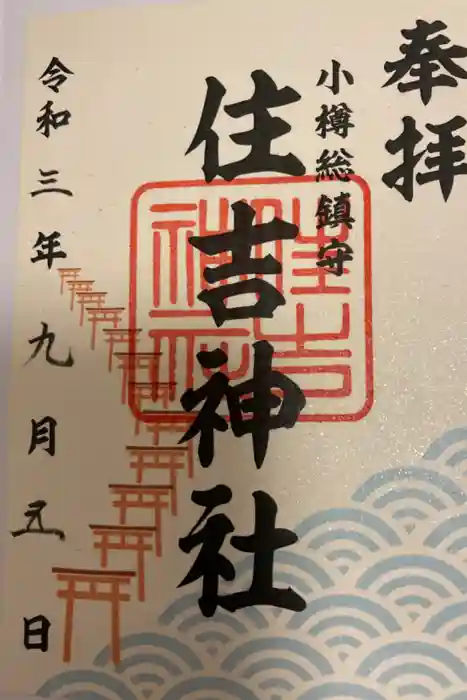 奉拝
小樽総鎮守
住吉神社
住吉神社
令和三年九月五日